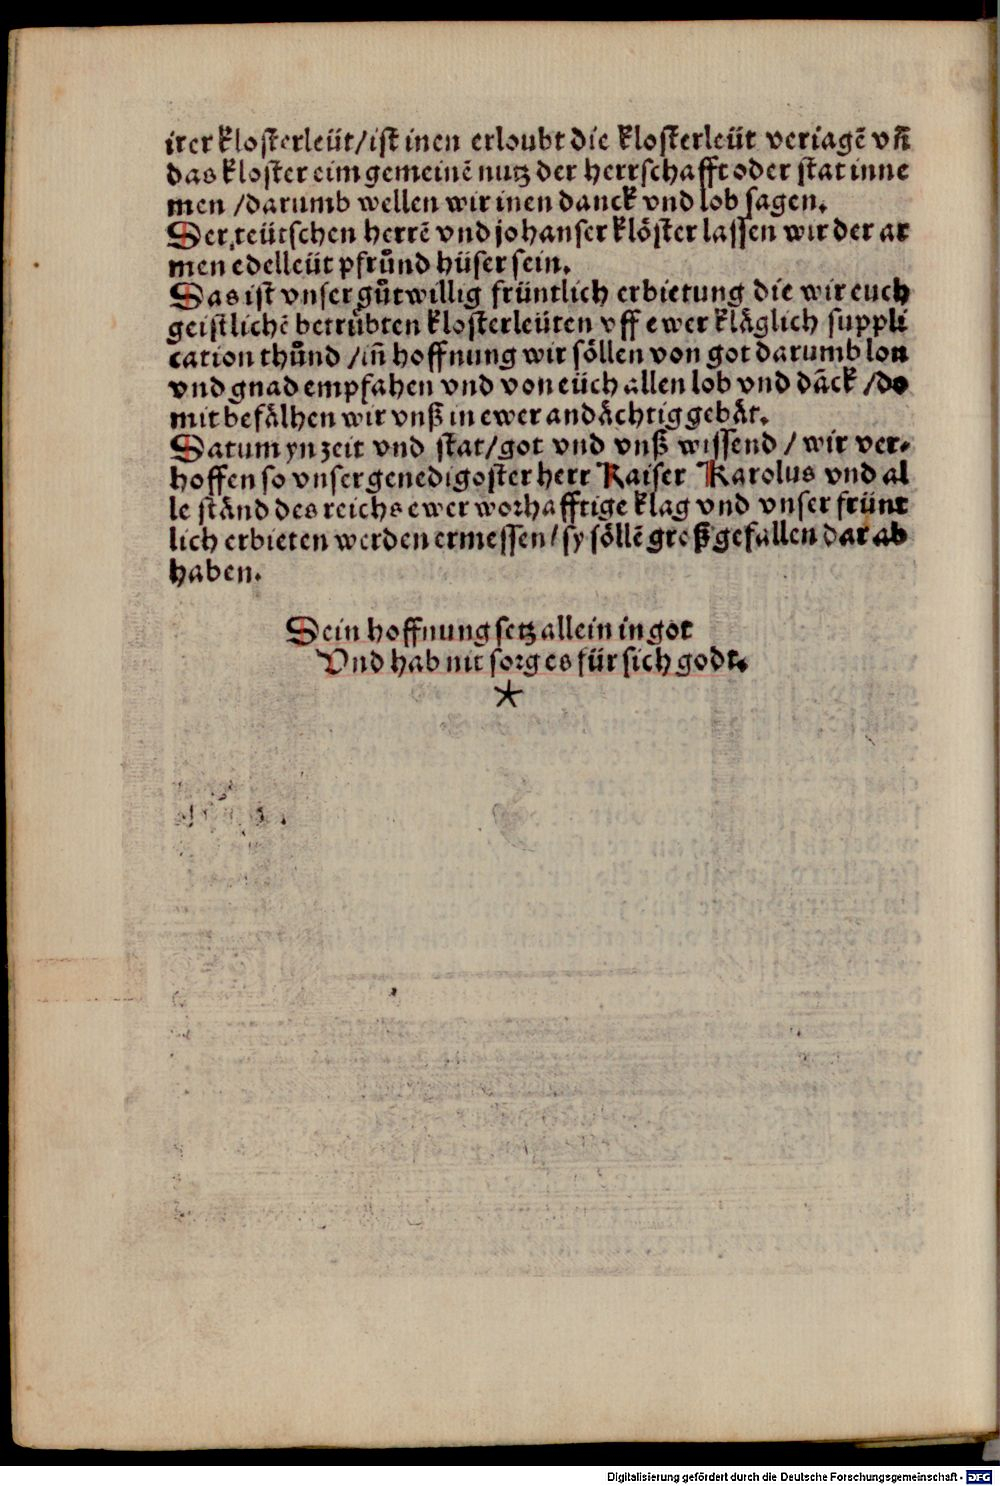 irer klosterleüt/ist inen erloubt die klosterleüt veriagē vñ
das kloster eim gemeinē nutz der herrschafft oder stat inne
men /darumb wellen wir inen danck vnd lob sagen.
Der teütschen herrē vnd johanser klöster lassen wir der ar
men edelleüt pfrůnd hüser sein.
Das ist vnser gůtwillig früntlich erbietung die wir euch
geistlichē betrübten klosterleüten vff ewer kläglich suppli
cation thůnd /iñ hoffnung wir söllen von got darumb lon
vnd gnad empfahen vnd von eüch allen lob vnd dāck /do
mit befälhen wir vnß in ewer andächtig gebät.
Datum yn zeit vnd stat/got vnd vnß wissend / wir ver⸗
hoffen so vnser genedigoster herr Kaiser Karolus vnd al
le ständ des reichs ewer worhafftige klag vnd vnser frünt
lich erbieten werden ermessen/sy söllē groß gefallen dar ab
haben.
Dein hoffnung setz allein in got
Vnd hab nit sorg es für sich godt.
Digitalisierung gefördert durch die Deutsche Forschungsgemeinschaft - DFG